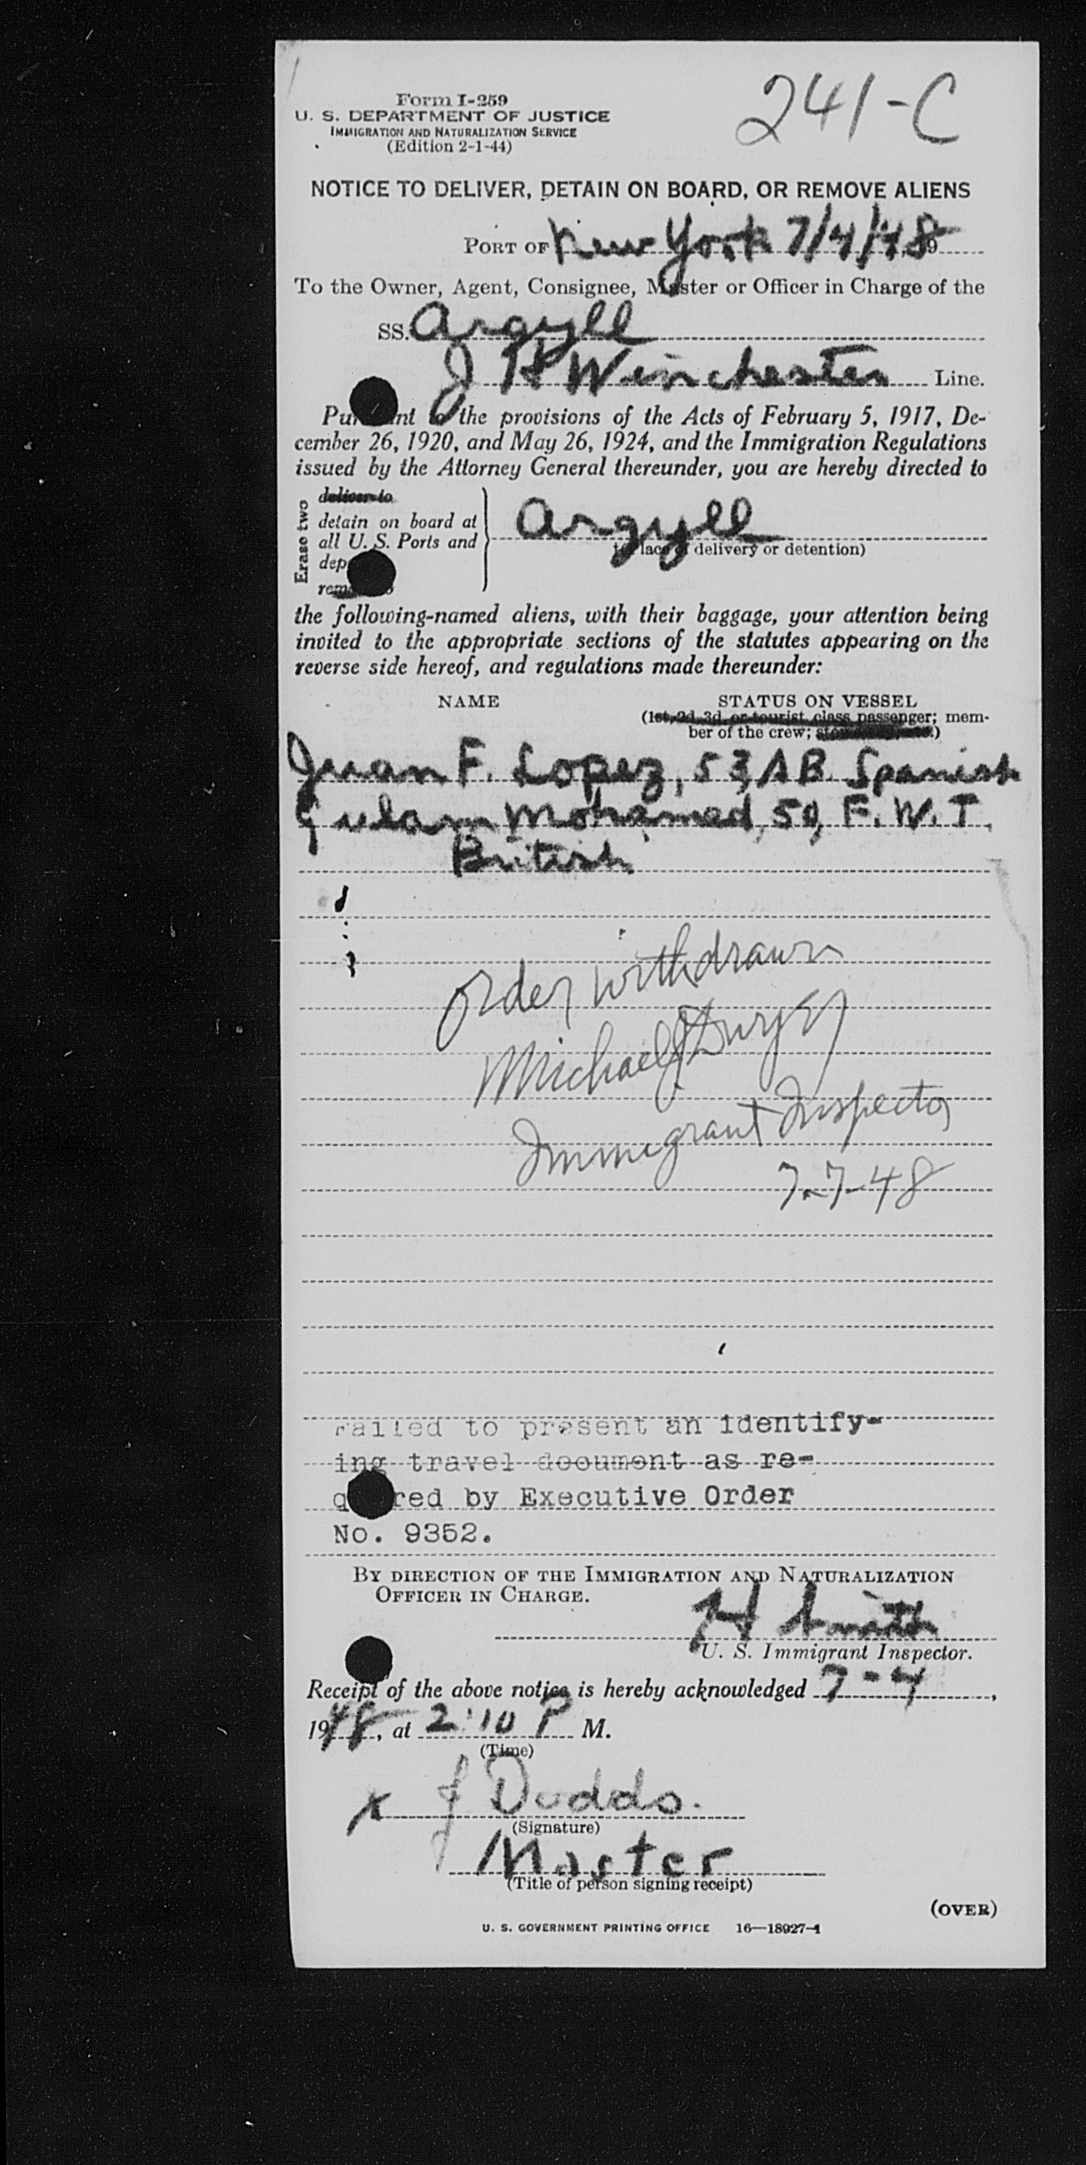 241-C
Form I-259
U. S. DEPARTMENT OF JUSTICE
IMMIGRATION AND NATURALIZATION SERVICE
(Edition 2-1-44)
NOTICE TO DELIVER, DETAIN ON BOARD, OR REMOVE ALIENS
PORT OF New York 7/4/48
To the Owner, Agent, Consignee, Master or Officer in Charge of the
SS. Argyll
J H Winchester Line.
Pursuant to the provisions of the Acts of February 5, 1917, De-
cember 26, 1920, and May 26, 1924, and the Immigration Regulations
issued by the Attorney General thereunder, you are hereby directed to
Erase two
deliver to
detain on board at
all U. S. Ports and
dep
remove to
Argyll
(Place of delivery or detention)
the following-named aliens, with their baggage, your attention being
invited to the appropriate sections of the statutes appearing on the
reverse side hereof, and regulations made thereunder:
NAME STATUS ON VESSEL
(1st, 2d, 3d, or tourist class passenger; mem-
ber of the crew;
Juan F. Lopez, 53, AB. Spanish
Gulam Mohamed, 50, F. W. T.
British
Order withdrawn
Michael J Dwyer
Immigrant Inspector
7-7-48
Failed to present an identify-
ing travel document as re-
quired by Executive Order
No. 9352.
BY DIRECTION OF THE IMMIGRATION AND NATURALIZATION
OFFICER IN CHARGE.
H Smith
U. S. Immigrant Inspector.
Receipt of the above notice is hereby acknowledged 7-4,
1948, at 2:10 P M.
(Time)
x J Dodds.
(Signature)
Master
(Title of person signing receipt)
(OVER)
U. S. GOVERNMENT PRINTING OFFICE 16—18927-1